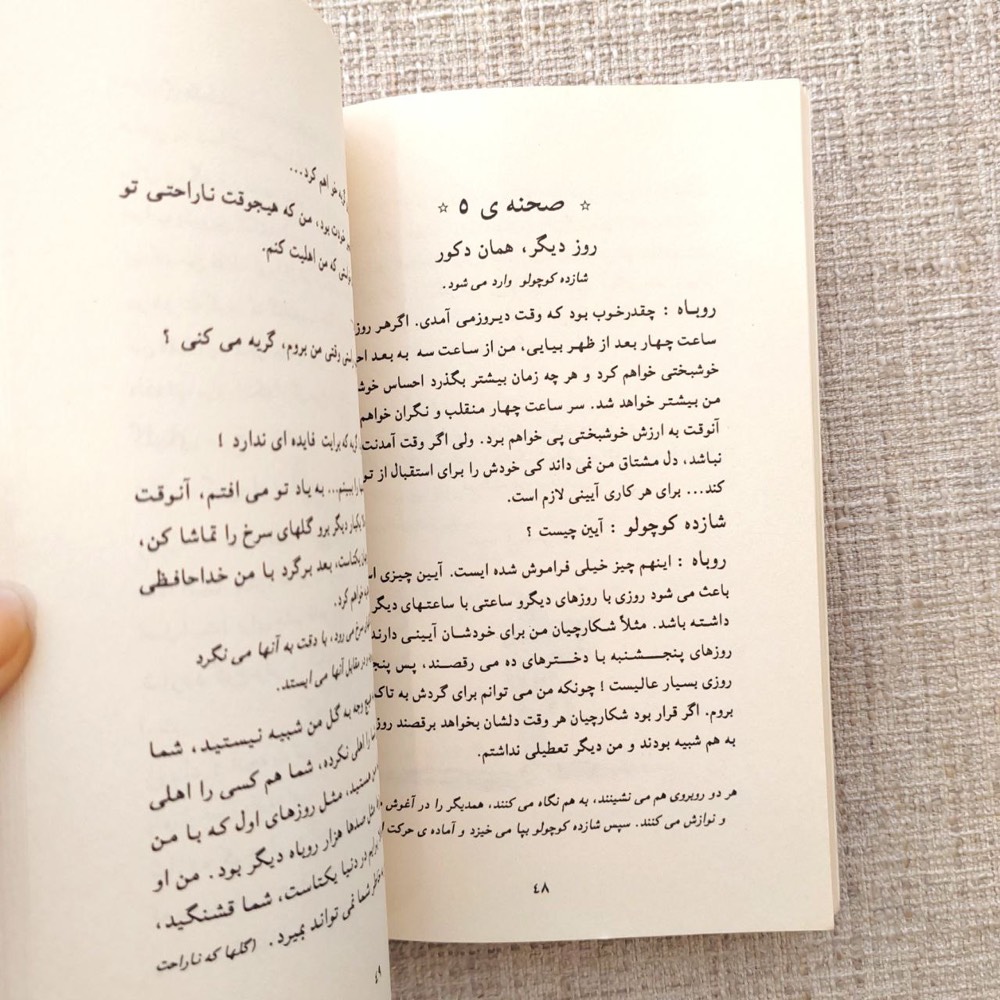 ☆ صحنه ی ۵ ☆
روز دیگر، همان دکور
شازده کوچولو وارد می شود.
روباه : چقدرخوب بود که وقت دیروزمی آمدی. اگرهر روز
ساعت چهار بعد از ظهر بیایی، من از ساعت سه به بعد
خوشبختی خواهم کرد و هر چه زمان بیشتر بگذرد احساس
من بیشتر خواهد شد. سر ساعت چهار منقلب و نگران خواهم
آنوقت به ارزش خوشبختی پی خواهم برد. ولی اگر وقت آمدنت
نباشد، دل مشتاق من نمی داند کی خودش را برای استقبال از تو
کند... برای هر کاری آیینی لازم است.
شازده کوچولو : آیین چیست ؟
روباه : اینهم چیز خیلی فراموش شده ایست. آیین چیزی
باعث می شود روزی با روزهای دیگرو ساعتی با ساعتهای دیگر
داشته باشد. مثلاً شکارچیان من برای خودشان آیینی دارند
روزهای پنجشنبه با دخترهای ده می رقصند، پس
روزی بسیار عالیست ! چونکه من می توانم برای گردش به
بروم. اگر قرار بود شکارچیان هر وقت دلشان بخواهد برقصند روز
به هم شبیه بودند و من دیگر تعطیلی نداشتم.
هر دو روبروی هم می نشینند، به هم نگاه می کنند، همدیگر را در آغوش
و نوازش می کنند. سپس شازده کوچولو بپا می خیزد و آماده ی حرکت
۴۸
خواهم کرد...
خودت بود، من که هیچوقت ناراحتی تو
که من اهلیت کنم.
وقتی من بروم، گریه می کنی ؟
که برایت فایده ای ندارد !
به یاد تو می افتم، آنوقت
یکبار دیگر برو گلهای سرخ را تماشا کن،
یکتاست، بعد برگرد با من خداحافظی
خواهم کرد.
سرخ می رود، با دقت به آنها می نگرد
در مقابل آنها می ایستد.
وجه به گل من شبیه نیستید، شما
را اهلی نکرده، شما هم کسی را اهلی
مثل روزهای اول که با من
مثل صدها هزار روباه دیگر بود. من او
در دنیا یکتاست، شما قشنگید،
شما نمی تواند بمیرد. (گلها که ناراحت
۴۹